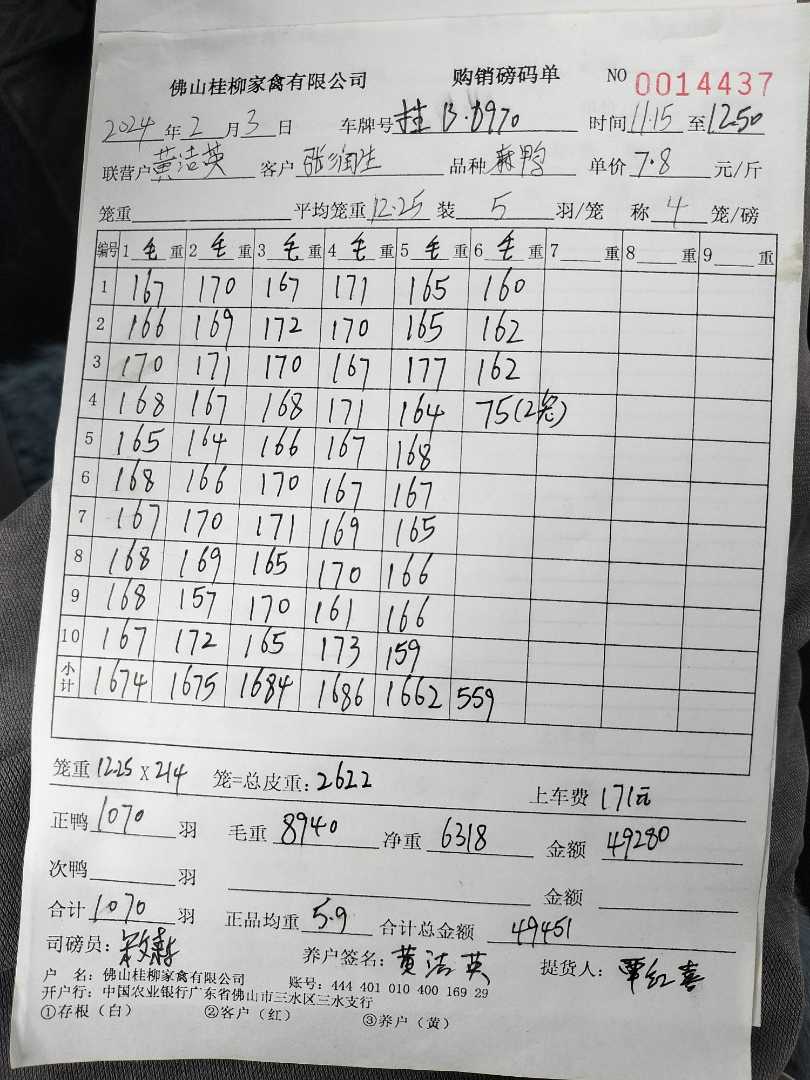 佛山桂柳家禽有限公司 购销磅码单 NO 0014437
2024年2月3日 车牌号桂B·D970 时间11:15至12:50
联营户黄洁英 客户张润生 品种麻鸭 单价7.8元/斤
笼重 平均笼重12.25装5羽/笼 称4笼/磅
编号 1毛重 2毛重 3毛重 4毛重 5毛重 6毛重 7重 8重 9重
1 167 170 167 171 165 160
2 166 169 172 170 165 162
3 170 171 170 167 177 162
4 168 167 168 171 164 75(2笼)
5 165 164 166 167 168
6 168 166 170 167 167
7 167 170 171 169 165
8 168 169 165 170 166
9 168 157 170 161 166
10 167 172 165 173 159
小计 1674 1675 1684 1686 1662 559
笼重12.25×214 笼=总皮重:2622 上车费 171元
正鸭1070羽 毛重8940 净重6318 金额49280
次鸭 羽 金额
合计1070羽 正品均重5.9 合计总金额49451
司磅员: 养户签名:黄洁英 提货人:覃红喜
户 名:佛山桂柳家禽有限公司 账号:444 401 010 400 169 29
开户行:中国农业银行广东省佛山市三水区三水支行
①存根(白) ②客户(红) ③养户(黄)